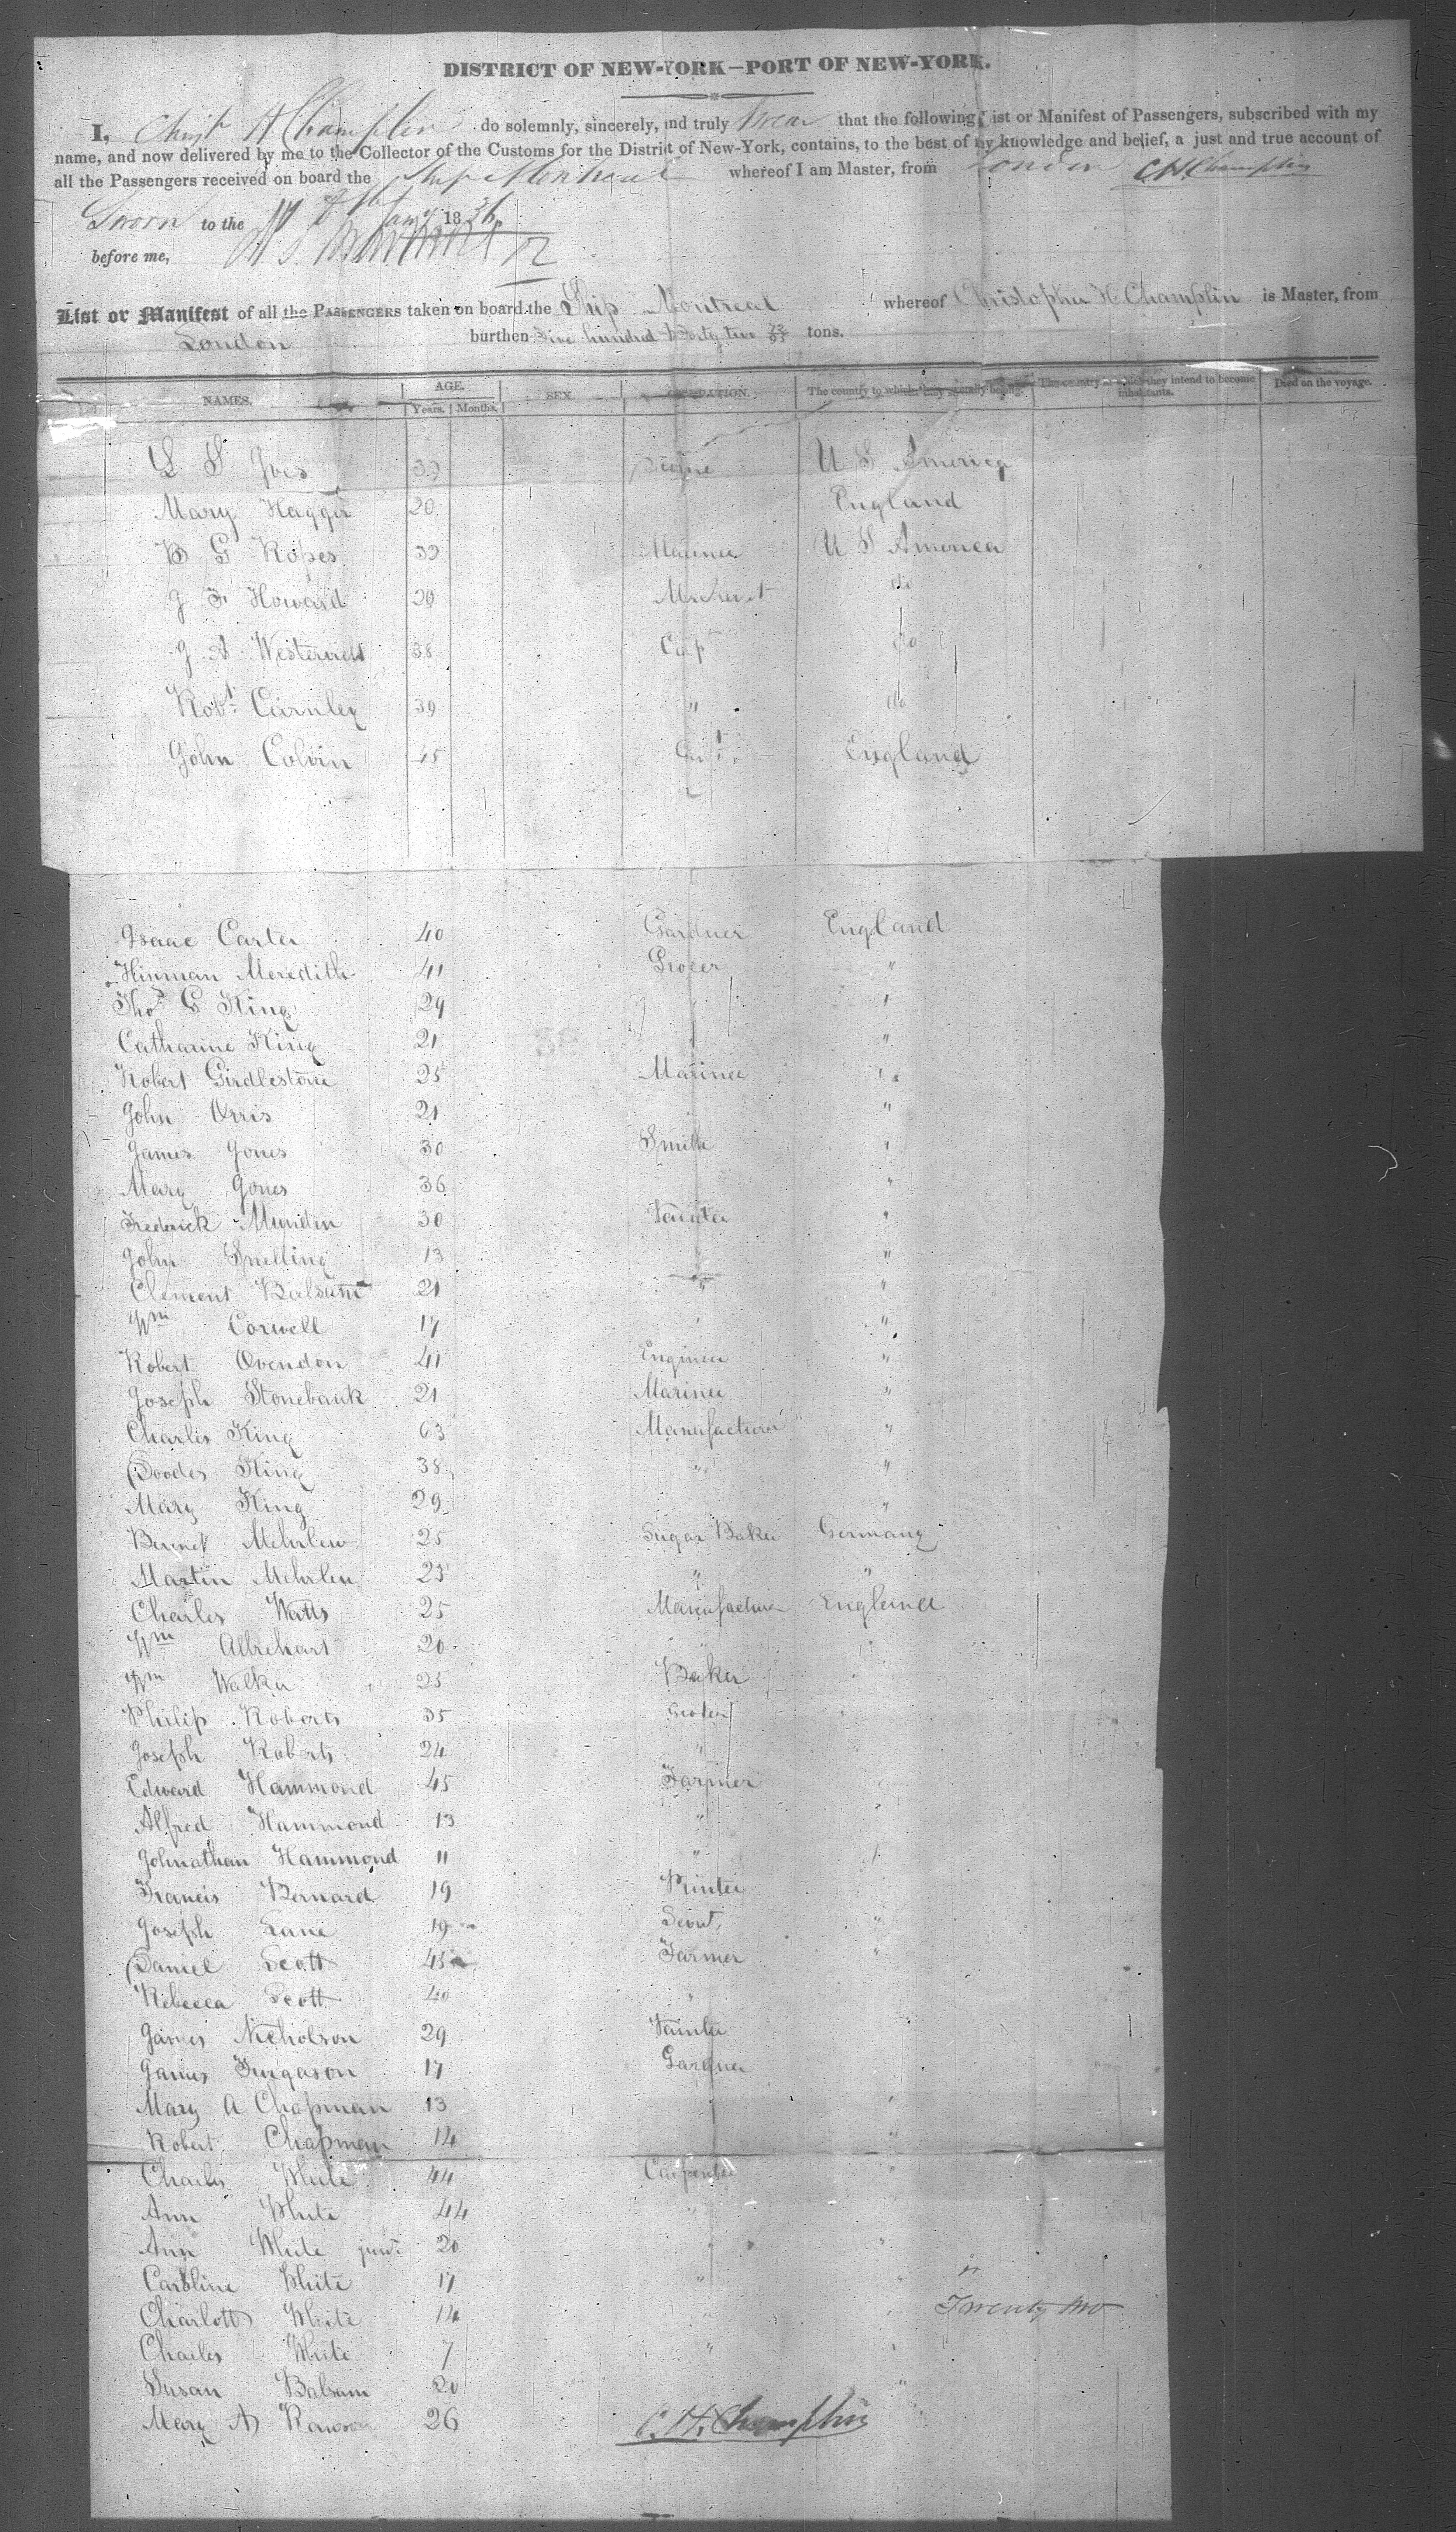 DISTRICT OF NEW-YORK—PORT OF NEW-YORK.
I, Christr H Champlin do solemnly, sincerely, and truly Swear that the following List or Manifest of Passengers, subscribed with my
name, and now delivered by me to the Collector of the Customs for the District of New-York, contains, to the best of my knowledge and belief, a just and true account of
all the Passengers received on board the Ship Montreal whereof I am Master, from London C H Champlin
Sworn to the Jany 1836
before me,
List or Manifest of all the PASSENGERS taken on board the Ship Montreal whereof Christopher H Champlin is Master, from
London burthen Five hundred & Forty two tons.
NAMES. AGE. Years. Months. SEX. OCCUPATION. The country to which they severally belong. The country of which they intend to become inhabitants. Died on the voyage.
L S Ives 39 U S America
Mary Hagger 20 England
B G Ropes 39 Mariner U S America
J F Howard 29 do
J A Westervelt 38 Capt do
Robt Carnley 39 " do
John Colvin 45 England
Isaac Carter 40 Gardner England
Hinman Meredith 41 Grocer "
Thos S King 29 "
Catharine King 21 "
Robert Girdlestone 25 Mariner "
John Orris 21 "
James Jones 30 Smith "
Mary Jones 36 "
Frederick Mundin 30 Painter "
John Snelling 13 "
Clement Balsam 21 " "
Wm Corwell 17 "
Robert Ovendon 41 Engineer "
Joseph Stonebank 21 Mariner "
Charles King 63 Manufacturer "
Doodes King 38 " "
Mary King 29 "
Bernet Mehrlew 25 Sugar Baker Germany
Martin Mehrlen 23 " "
Charles Watts 25 Manufacturer England
Wm Albrehart 20
Wm Walker 25 Baker
Philip Roberts 35
Joseph Roberts 24 "
Edward Hammond 45 Farmer
Alfred Hammond 13 "
Johnathan Hammond 11 "
Francis Bernard 19 Printer
Joseph Lane 19 Servt "
Daniel Scott 45 Farmer "
Rebecca Scott 40 "
James Nicholson 29 Painter
James Furgason 17 Gardner
Mary A Chapman 13 "
Robert Chapman 14 "
Charles White 44 Carpenter "
Ann White 44 "
Ann White junr 20 "
Caroline White 17 " "
Charlott White 14 Twenty two
Charles White 7 " "
Susan Balsam 20 "
Mary A Rawson 26
C. H. Champlin